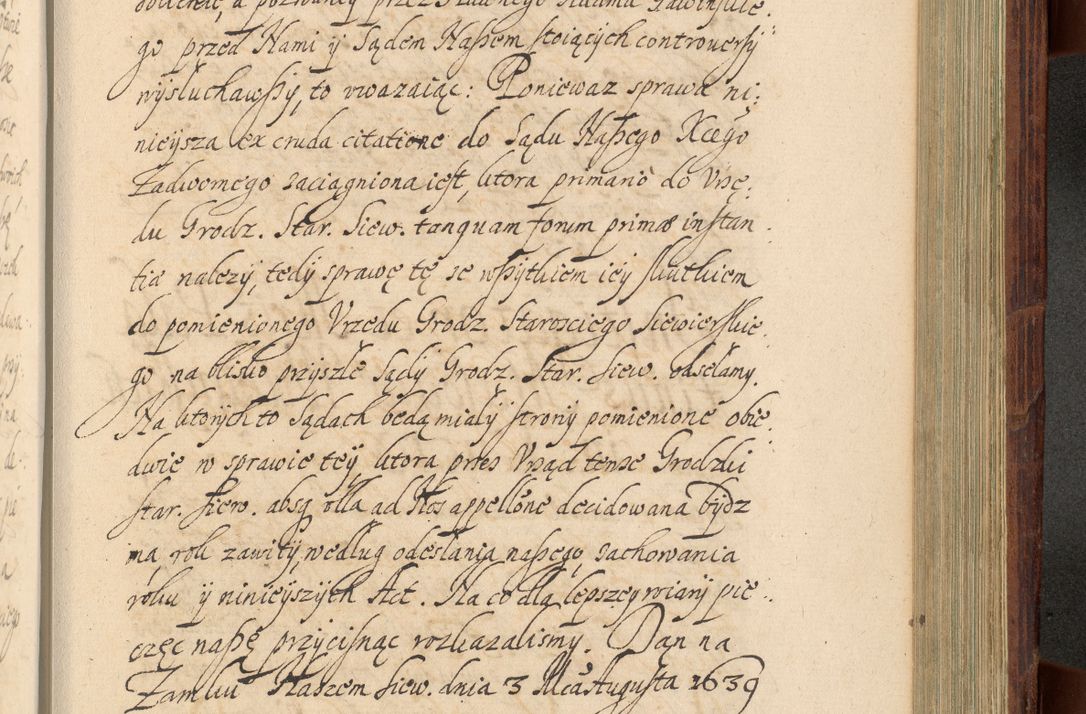 a pozwaney przez Sławnego Adama Gawinskie:
go przed Nami ÿ Sądem Naszem stoiących controuersÿ
wysłuchawszÿ, to vwazaiąc: Poniewaz sprawa ni:
nieÿsza ex cruda citatione do Sądu Naszego Xcego
Zadwornego zaciągniona iest, ktora primario do Vrzę:
du Grodz. Star. Siew. tanquam forum primæ instan:
tiæ nalezÿ, tedÿ sprawę tę ze wszÿtkiem ieÿ skutkiem
do pomienionego Vrzedu Grodz. Starosciego Siewierskie:
go na blisko przÿszłe Sądÿ Grodz. Star. Siew. odsełamy.
Na ktorÿch to Sądach będą miałÿ stronÿ pomienione obie:
dwie w sprawie teÿ, ktora przez Vrząd tenze Grodzki
Star. Siew. absq, vlla ad Nos appellōne decidowana bÿdz
ma, rok zawitÿ, według odesłania naszego, zachowania
roku ÿ ninieÿszÿch Act. Na co dla lepszeÿ wiarÿ pie:
częc naszę przÿcisnąc rozkazalismy. Dan na
Zamku Naszem Siew. dnia 3 Mca Augusta 1639